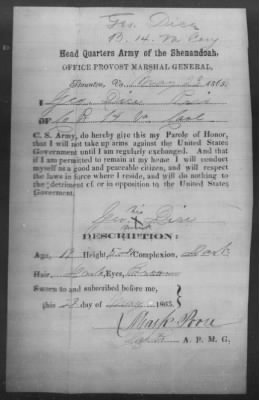 B. 14. Va Cav
Head Quarters Army of the Shenandoah.
OFFICE PROVOST MARSHAL GENERAL,
Staunton, Va. 1865.
I Geo
of Co B 14 Va Cav
C. S. Army, do hereby give this my Parole of Honor,
that I will not take up arms against the United States
Government until I am regularly exchanged. And that
if I am permitted to remain at my home I will conduct
myself as a good and peaceful citizen, and will respect
the laws in force where I reside, and will do nothing to
the detriment of or in opposition to the United States
Government.
his
Geo X
mark
DESCRIPTION:
Age, Height, Complexion, Dark
Hair, Dark Eyes,
Sworn to and subscribed before me,
this day of May 1865.
Mark Poore
Capt & A. P. M. G.